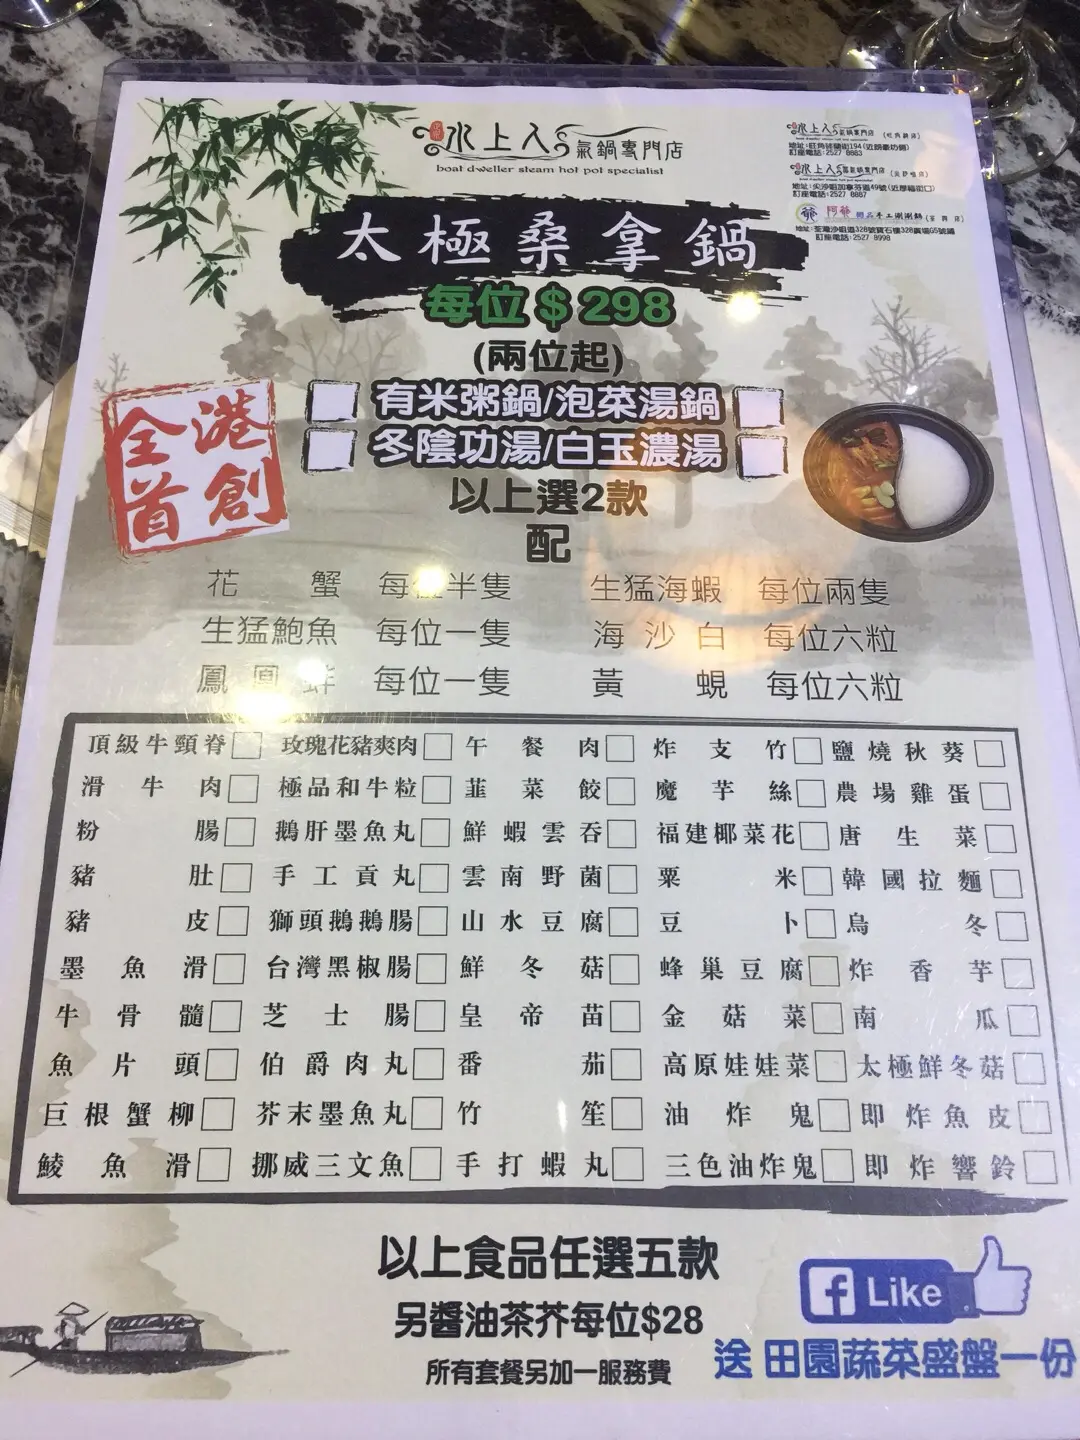 水上人 氣鍋專門店
boat dweller steam hot pot specialist
水上人 氣鍋專門店 (旺角總店)
訂座電話:2527 8883
水上人 氣鍋專門店
地址:尖沙咀加拿芬道49號(近厚福街口)
訂座電話:2527 8887
阿爺 手工涮涮鍋
訂座電話:2527 8998
太極桑拿鍋
每位$298
(兩位起)
全港首創
有米粥鍋/泡菜湯鍋
冬陰功湯/白玉濃湯
以上選2款
配
花蟹 每位半隻 生猛海蝦 每位兩隻
生猛鮑魚 每位一隻 海沙白 每位六粒
鳳凰蚌 每位一隻 黃蜆 每位六粒
頂級牛頸脊 玫瑰花豬爽肉 午餐肉 炸支竹 鹽燒秋葵
滑牛肉 極品和牛粒 韮菜餃 魔芋絲 農場雞蛋
粉腸 鵝肝墨魚丸 鮮蝦雲吞 福建椰菜花 唐生菜
豬肚 手工貢丸 雲南野菌 粟米 韓國拉麵
豬皮 獅頭鵝鵝腸 山水豆腐 豆卜 烏冬
墨魚滑 台灣黑椒腸 鮮冬菇 蜂巢豆腐 炸香芋
牛骨髓 芝士腸 皇帝苗 金菇菜 南瓜
魚片頭 伯爵肉丸 番茄 高原娃娃菜 太極鮮冬菇
巨根蟹柳 芥末墨魚丸 竹笙 油炸鬼 即炸魚皮
鯪魚滑 挪威三文魚 手打蝦丸 三色油炸鬼 即炸響鈴
以上食品任選五款
另醬油茶芥每位$28
所有套餐另加一服務費
f Like
送 田園蔬菜盛盤一份